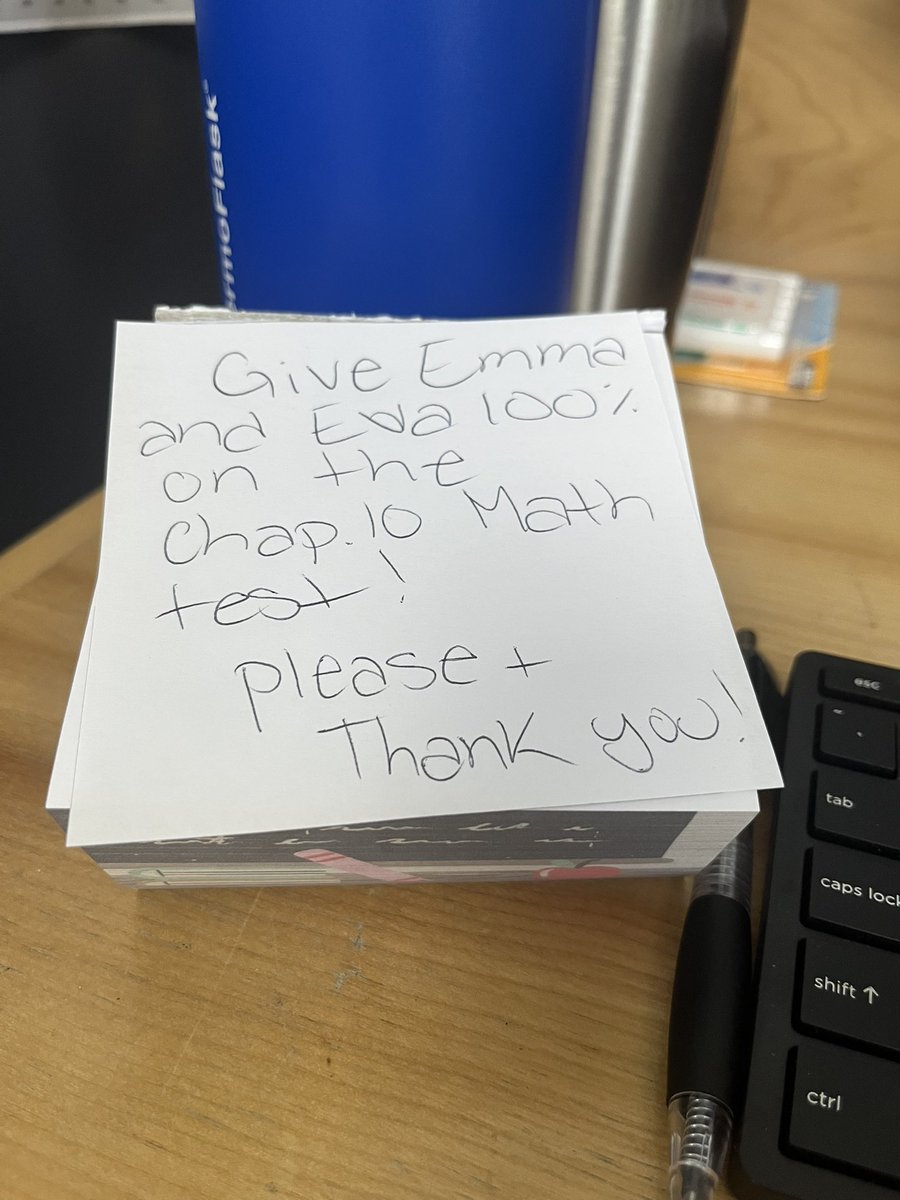 ermoFlask
Give Emma
and Eva 100%
on the
Chap.10 Math
test!
please +
Thank you!
esc
tab
caps lock
shift ↑
ctrl